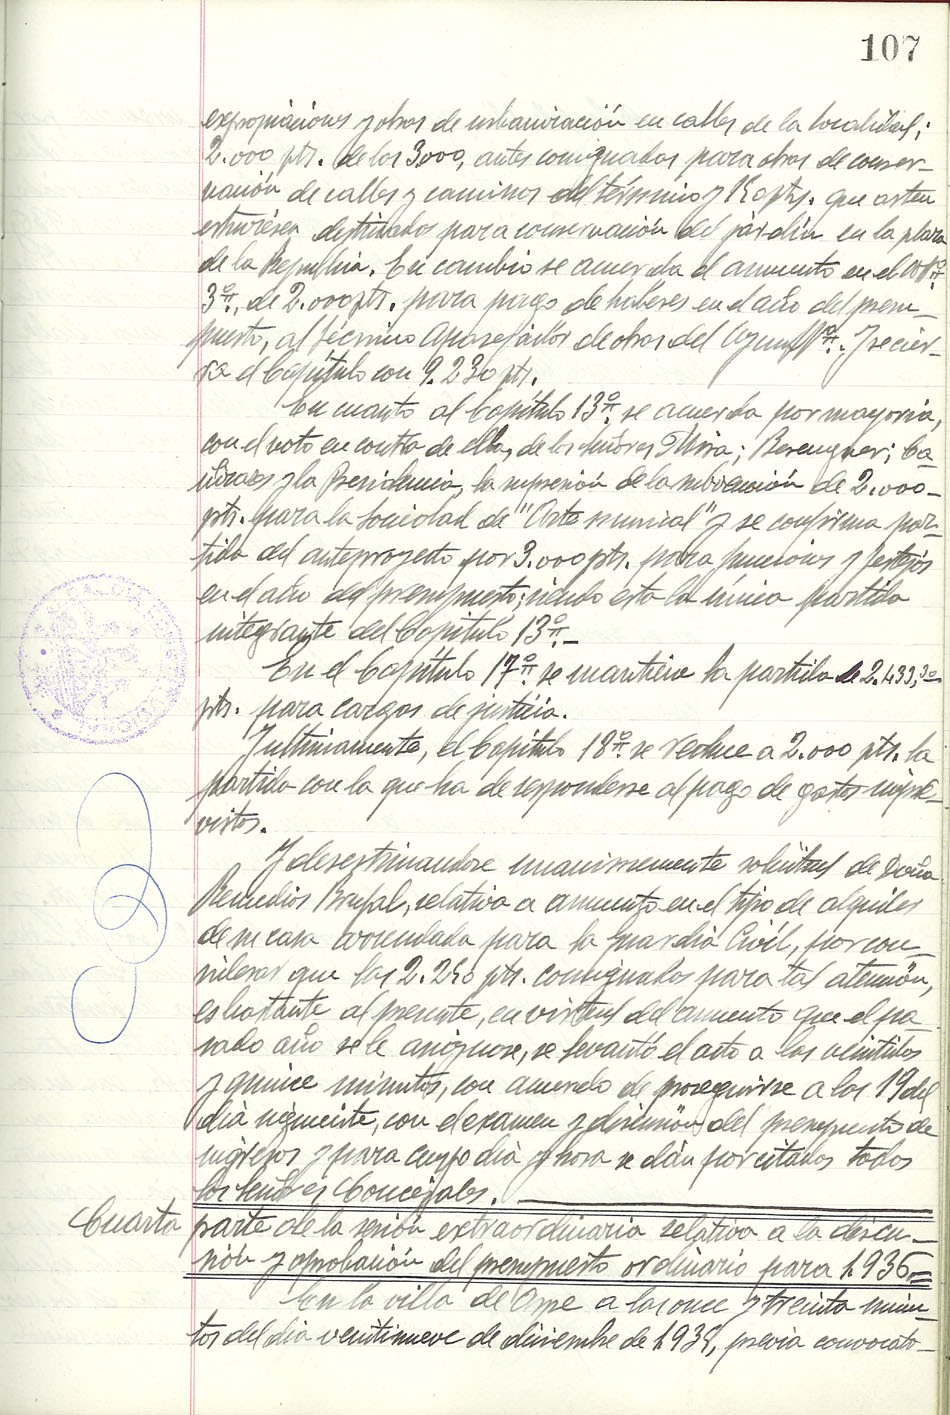 107
expropiaciones y obras de urbanización en calles de la localidad;
2.000 pts. de las 3000, antes consignadas para obras de conser-
vación de calles y caminos del término y 150 pts. que antes
estuviesen destinadas para conservación del jardín en la plaza
de la República. En cambio se acuerda el aumento en el Artº.
3º, de 2.000 pts. para pago de haberes en el año del presu-
puesto, al técnico aparejador de obras del Ayuntº. Y se cier-
ra el Capítulo con 9.230 pts.
En cuanto al Capítulo 13º. se acuerda por mayoría,
con el voto en contra de ella, de los señores Mira; Berenguer; Ca-
ñizares y la Presidencia, la supresión de la subvención de 2.000-
pts. para la Sociedad de "Arte musical" y se confirma par-
tida del anteproyecto por 3.000 pts. para funciones y festejos
en el año del presupuesto; siendo esta la única partida
integrante del Capítulo 13º.-
En el Capítulo 17º. se mantiene la partida de 2.433,30
pts. para cargos de justicia.
Y ultimamente, el Capítulo 18º. se reduce a 2.000 pts. la
partida con la que ha de responderse al pago de gastos impre-
vistos.
Y desestimandose unanimemente solicitud de Doña
Remedios Brufal, relativa a aumento en el tipo de alquiler
de su casa arrendada para la Guardia Civil, por con-
siderar que las 2.250 pts. consignadas para tal atención,
es bastante al presente, en virtud del aumento que el pa-
sado año se le asignase, se levantó el acto a las veintidos
y quince minutos, con acuerdo de proseguirse a las 19 del
día siguiente, con el examen y discusión del presupuesto de
ingresos y para cuyo día y hora se dán por citados todos
los señores Concejales.
Cuarta parte de la sesión extraordinaria relativa a la discu-
sión y aprobación del presupuesto ordinario para 1.936.=
En la villa de Aspe a las once y treinta minu-
tos del día veintinueve de diciembre de 1.935, previa convocato-